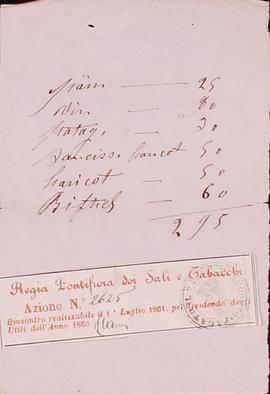 pain — 25
vin — 80
potag. — 20
Saucisse haricot 50
haricot — 50
Biftek — 60
295
Regia Pontificia dei Sali e Tabacchi
Azione N.° 2625
Rincontro realizzabile il 1.° Luglio 1861. pel dividendo degli
Utili dell'Anno 1860